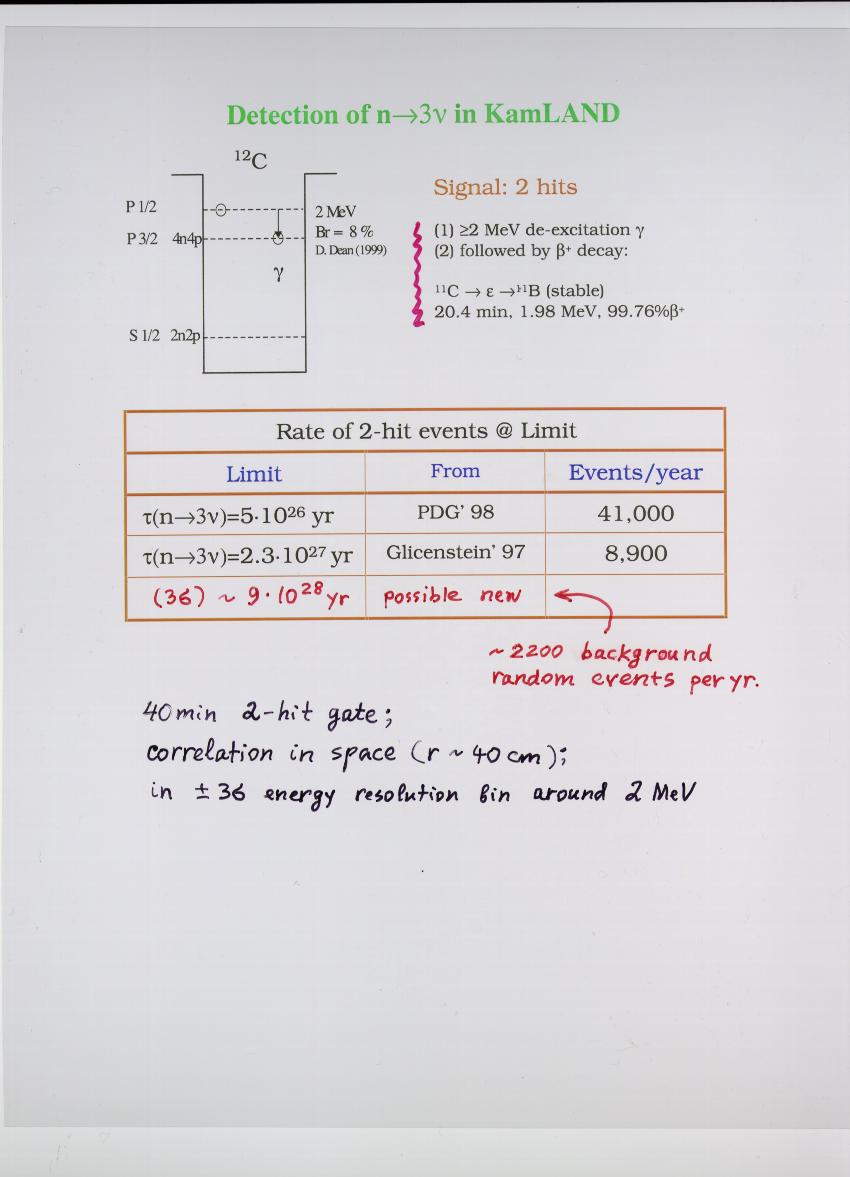 Detection of n→3ν in KamLAND
¹²C
Signal: 2 hits
P 1/2
2 MeV
P 3/2 4n4p
Br = 8 %
D. Dean (1999)
γ
S 1/2 2n2p
(1) ≥2 MeV de-excitation γ
(2) followed by β⁺ decay:
¹¹C → ε →¹¹B (stable)
20.4 min, 1.98 MeV, 99.76%β⁺
Rate of 2-hit events @ Limit
Limit From Events/year
τ(n→3ν)=5·10²⁶ yr PDG' 98 41,000
τ(n→3ν)=2.3·10²⁷ yr Glicenstein' 97 8,900
(3σ) ~ 9·10²⁸ yr possible new
~2200 background
random events per yr.
40 min 2-hit gate;
correlation in space (r ~ 40 cm);
in ± 3σ energy resolution bin around 2 MeV